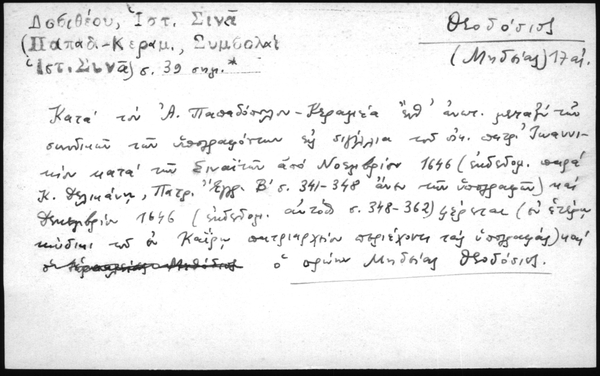 Δοσιθέου, Ἱστ. Σινᾶ
(Παπαδ.-Κεραμ., Συμβολαὶ
Ἱστ. Σινᾶ) σ. 39 σημ.*
Θεοδόσιος
(Μηδείας) 17 αἰ.
Κατὰ τὸν Ἀ. Παπαδόπουλον-Κεραμέα ἔνθ' ἀνωτ. μεταξὺ τῶν
συνοδικῶν τῶν ὑπογραψάντων εἰς σιγίλλια τοῦ οἰκ. πατρ. Ἰωαννι-
κίου κατὰ τῶν Σιναϊτῶν ἀπὸ Νοεμβρίου 1646 (ἐκδεδομ. παρὰ
Κ. Δελικάνη, Πατρ. Ἔγγρ. Β' σ. 341-348 ἄνευ τῶν ὑπογραφῶν) καὶ
Δεκεμβρίου 1646 (ἐκδεδομ. αὐτόθι σ. 348-362) φέρεται (ἐν ἑτέρῳ
κώδικι τοῦ ἐν Καΐρῳ πατριαρχείου περιέχοντι τὰς ὑπογραφάς) καὶ
ὁ πρώην Μηδείας Θεοδόσιος.